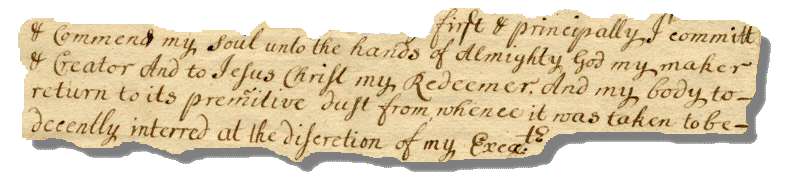 first & principally I committ
& Commend my soul unto the hands of Almighty God my maker
& Creator And to Jesus Christ my Redeemer. And my body to-
return to its premitive dust from whence it was taken to be-
decently interred at the discretion of my Exec:te